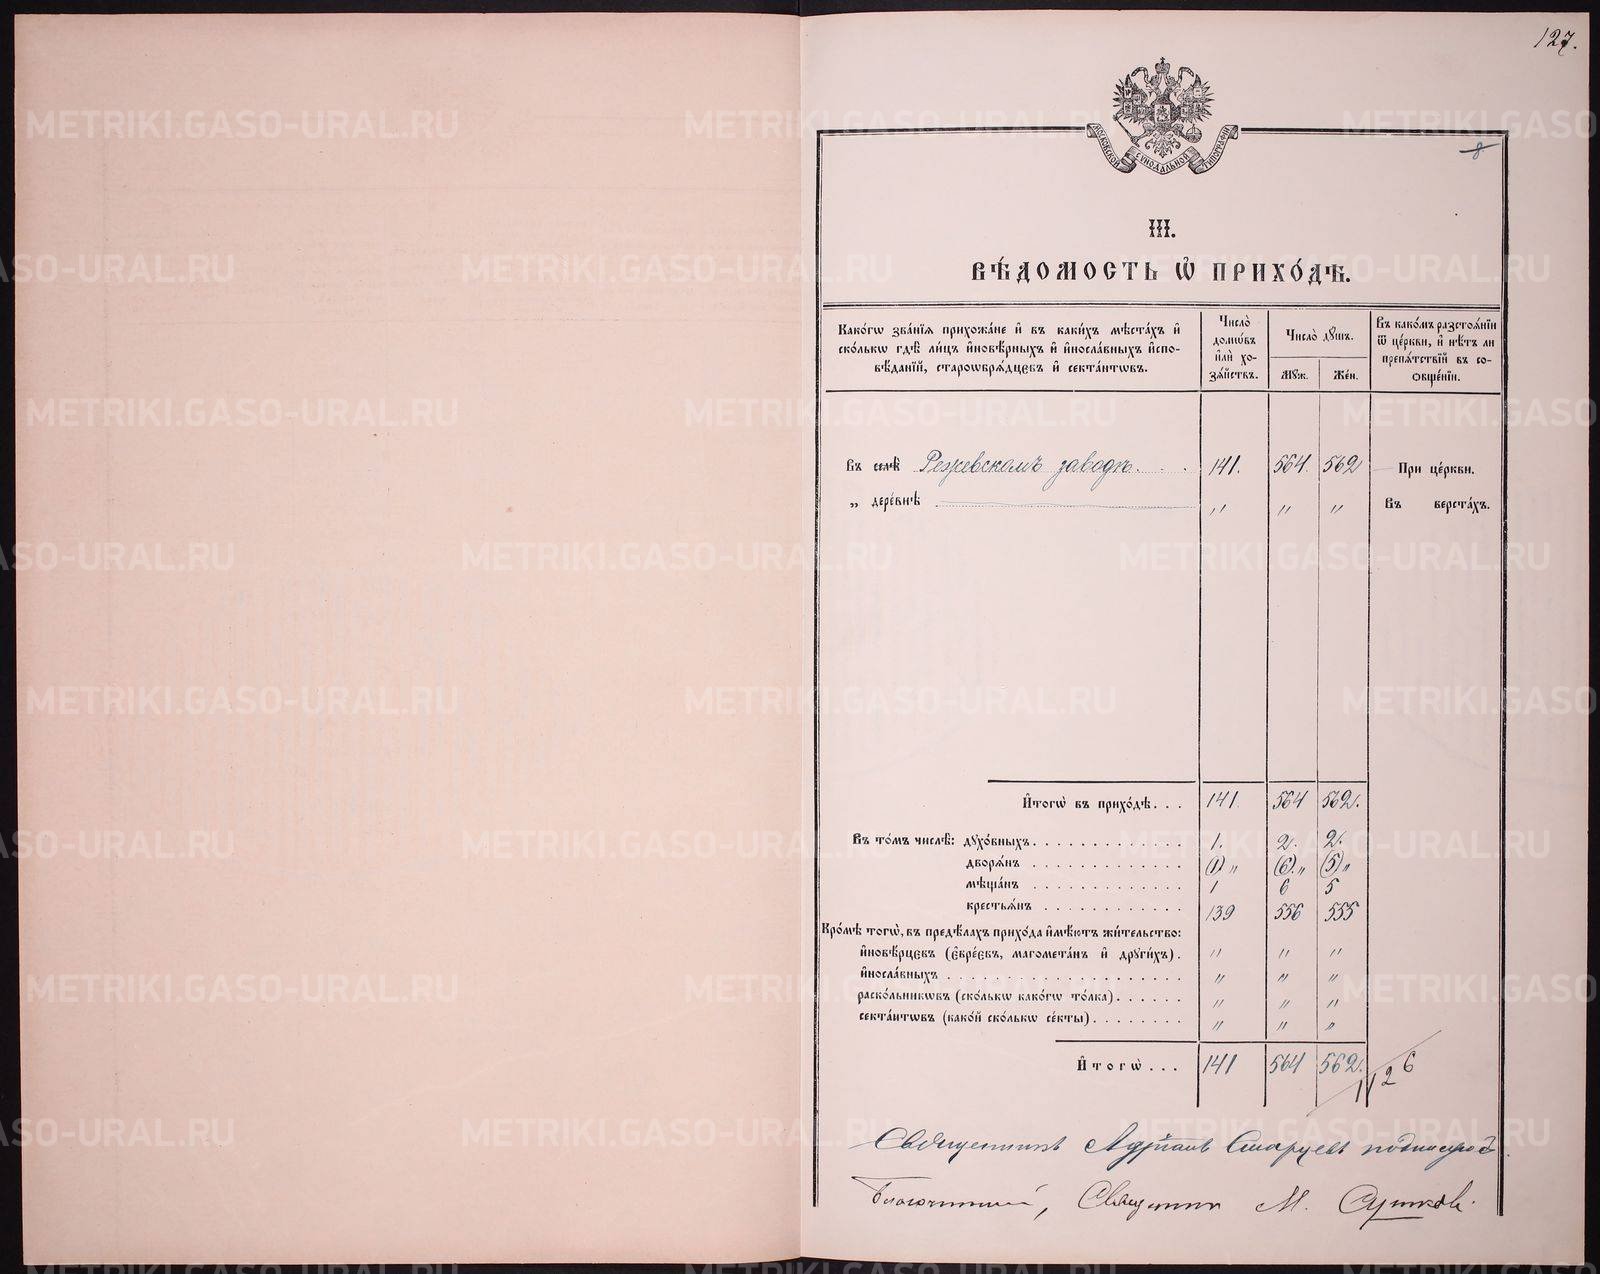 127.
МОСКОВСКОЙ СѴНОДАЛЬНОЙ ТИПОГРАФІИ
8
III.
ВѢ́ДОМОСТЬ Ѡ҆ ПРИХО́ДѢ.
Како́гѡ зва́нїѧ прихожа́не и҆ въ каки́хъ мѣ́стахъ и҆ ско́лькѡ гдѣ̀ ли́цъ и҆новѣ́рныхъ и҆ и҆носла́вныхъ и҆спо-
вѣ́данїй, старообрѧ́дцевъ и҆ секта́нтѡвъ.
Число̀ домѡ́въ и҆лѝ хо-
зѧ́йствъ.
Число̀ дꙋ́шъ.
Мꙋж.
Же́н.
Въ како́мъ разстоѧ́нїи ѿ це́ркви, и҆ нѣ́тъ ли препѧ́тствїй въ со-
ѻбще́нїи.
Въ селѣ̀ Режевскомъ заводѣ . . . 141. 564. 562 При це́ркви.
„ дере́внѣ „ „ „ Въ верста́хъ.
И҆тогѡ̀ въ прихо́дѣ. . . 141. 564 562.
Въ то́мъ числѣ̀: дꙋхо́вныхъ. . . . . . . . . . . . . 1. 2. 2.
дворѧ́нъ . . . . . . . . . . . . . (1)„ (6).„ (5)„
мѣща́нъ . . . . . . . . . . . . . 1 6 5
крестьѧ́нъ . . . . . . . . . . . . 139 556 555
Кро́мѣ тогѡ̀, въ предѣ́лахъ прихо́да и҆мѣ́ютъ жи́тельство:
и҆новѣ́рцевъ (є҆вре́євъ, магомета́нъ и҆ дрꙋги́хъ). „ „ „
и҆носла́вныхъ . . . . . . . . . . . . . . . . . . . . „ „ „
раско́льникѡвъ (ско́лькѡ како́гѡ то́лка). . . . . . „ „ „
секта́нтѡвъ (како́й ско́лькѡ се́кты). . . . . . . . „ „ „
И҆тогѡ̀ . . . 141 564 562.
1126
Священникъ Адріанъ Старцевъ
Благочинный, Священникъ М. Сушковъ.
METRIKI.GASO-URAL.RU